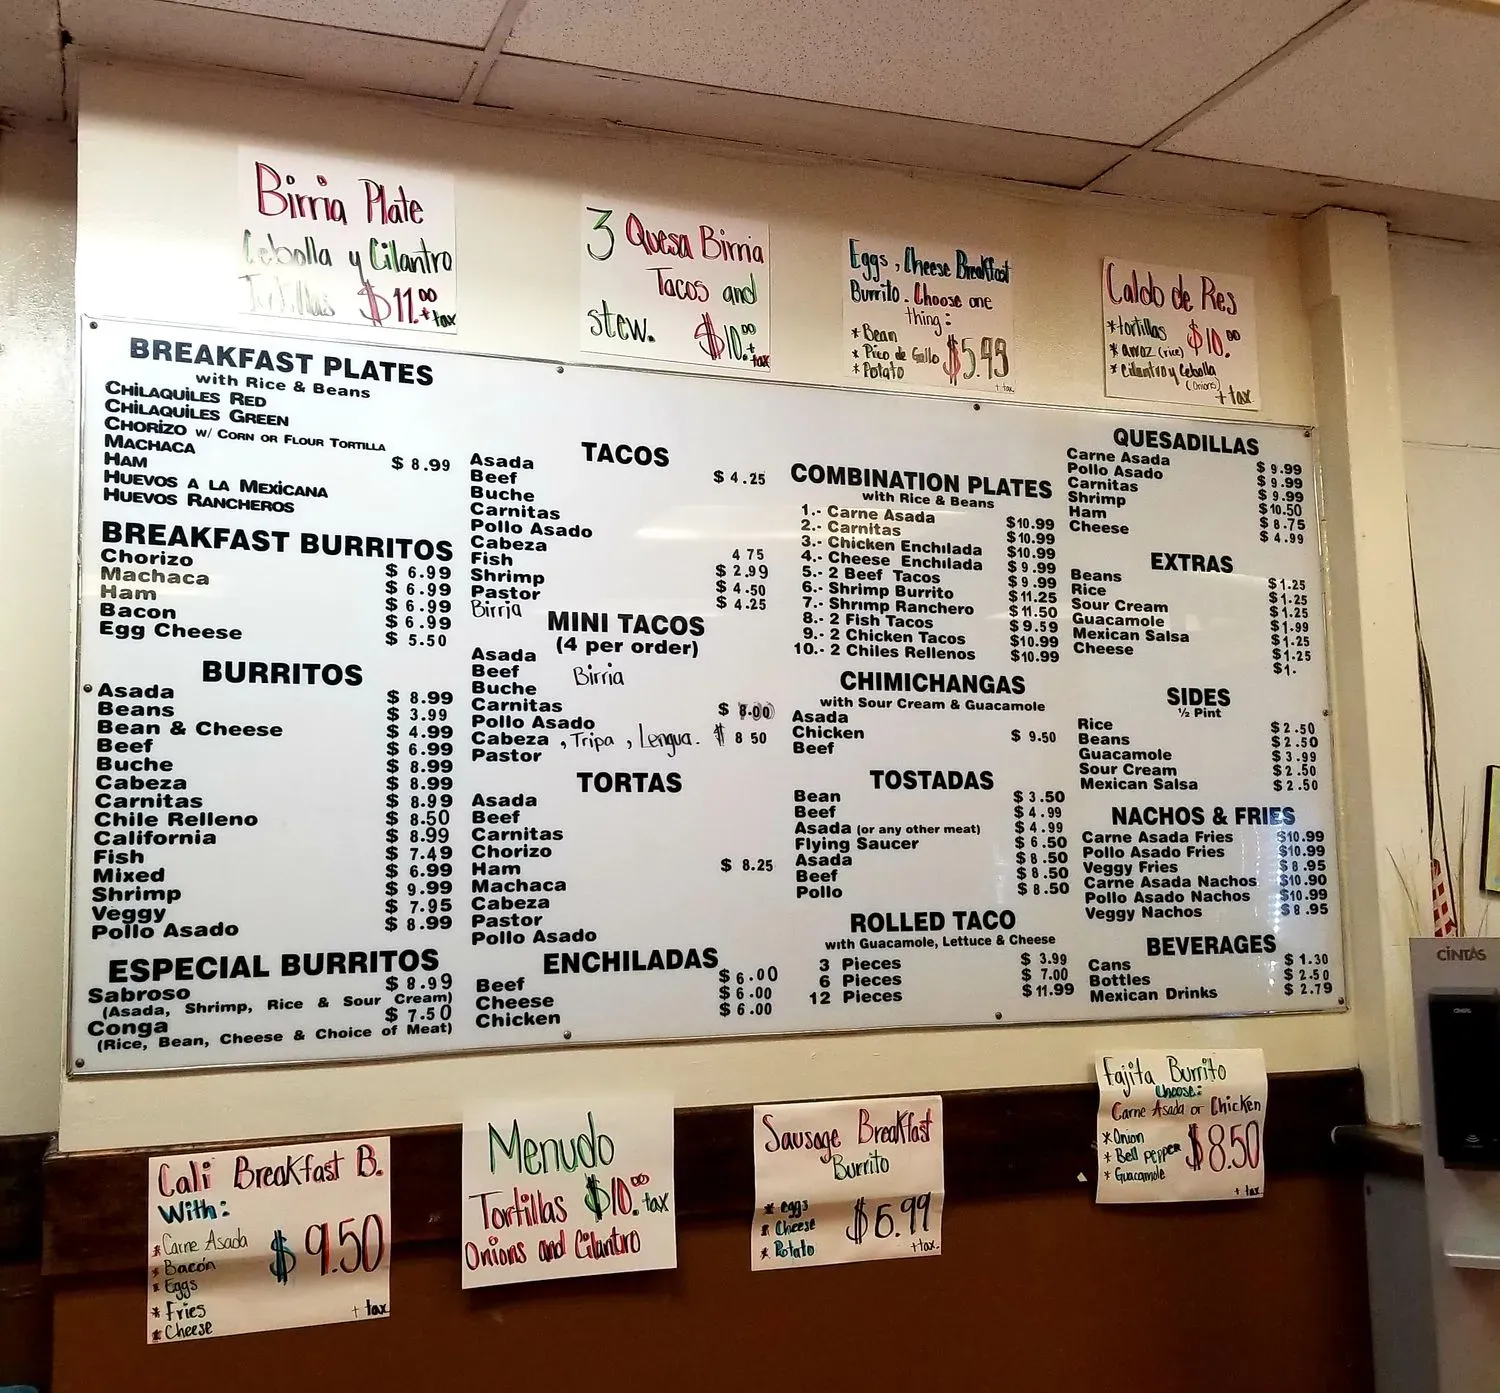 Birria Plate
Cebolla y Cilantro
Tortillas $11.00 + tax
3 Quesa Birria
Tacos and
stew. $10.00 + tax
Eggs, Cheese Breakfast
Burrito. Choose one
thing:
* Bean
* Pico de Gallo $5.99
* Potato
+ tax
Caldo de Res
*tortillas $10.00
* arroz (rice)
* cilantro y Cebolla
(onions)
+ tax
BREAKFAST PLATES
with Rice & Beans
CHILAQUILES RED
CHILAQUILES GREEN
CHORIZO W/ CORN OR FLOUR TORTILLA
MACHACA $ 8.99
HAM
HUEVOS A LA MEXICANA
HUEVOS RANCHEROS
BREAKFAST BURRITOS
Chorizo $ 6.99
Machaca $ 6.99
Ham $ 6.99
Bacon $ 6.99
Egg Cheese $ 5.50
BURRITOS
Asada $ 8.99
Beans $ 3.99
Bean & Cheese $ 4.99
Beef $ 6.99
Buche $ 8.99
Cabeza $ 8.99
Carnitas $ 8.99
Chile Relleno $ 8.50
California $ 8.99
Fish $ 7.49
Mixed $ 6.99
Shrimp $ 9.99
Veggy $ 7.95
Pollo Asado $ 8.99
ESPECIAL BURRITOS
Sabroso $ 8.99
(Asada, Shrimp, Rice & Sour Cream)
Conga $ 7.50
(Rice, Bean, Cheese & Choice of Meat)
TACOS
Asada
Beef $ 4.25
Buche
Carnitas
Pollo Asado
Cabeza
Fish 4 75
Shrimp $ 2.99
Pastor $ 4.50
Birria $ 4.25
MINI TACOS
(4 per order)
Asada
Beef Birria
Buche
Carnitas $ 8.00
Pollo Asado
Cabeza , Tripa , Lengua. $ 8 50
Pastor
TORTAS
Asada
Beef
Carnitas
Chorizo
Ham $ 8.25
Machaca
Cabeza
Pastor
Pollo Asado
ENCHILADAS
Beef $ 6.00
Cheese $ 6.00
Chicken $ 6.00
COMBINATION PLATES
with Rice & Beans
1.- Carne Asada $10.99
2.- Carnitas $10.99
3.- Chicken Enchilada $10.99
4.- Cheese Enchilada $ 9.99
5.- 2 Beef Tacos $ 9.99
6.- Shrimp Burrito $11.25
7.- Shrimp Ranchero $11.50
8.- 2 Fish Tacos $ 9.59
9.- 2 Chicken Tacos $10.99
10.- 2 Chiles Rellenos $10.99
CHIMICHANGAS
with Sour Cream & Guacamole
Asada
Chicken $ 9.50
Beef
TOSTADAS
Bean $ 3.50
Beef $ 4.99
Asada (or any other meat) $ 4.99
Flying Saucer $ 6.50
Asada $ 8.50
Beef $ 8.50
Pollo $ 8.50
ROLLED TACO
with Guacamole, Lettuce & Cheese
3 Pieces $ 3.99
6 Pieces $ 7.00
12 Pieces $11.99
QUESADILLAS
Carne Asada $ 9.99
Pollo Asado $ 9.99
Carnitas $ 9.99
Shrimp $10.50
Ham $ 8.75
Cheese $ 4.99
EXTRAS
Beans $1.25
Rice $1.25
Sour Cream $1.25
Guacamole $1.99
Mexican Salsa $1.25
Cheese $1.25
$1.
SIDES
½ Pint
Rice $ 2.50
Beans $ 2.50
Guacamole $ 3.99
Sour Cream $ 2.50
Mexican Salsa $ 2.50
NACHOS & FRIES
Carne Asada Fries $10.99
Pollo Asado Fries $10.99
Veggy Fries $ 8.95
Carne Asada Nachos $10.90
Pollo Asado Nachos $10.99
Veggy Nachos $ 8.95
BEVERAGES
Cans $ 1.30
Bottles $ 2.50
Mexican Drinks $ 2.79
CINTAS
Cali Breakfast B.
With:
* Carne Asada $9.50
* Bacon
* Eggs
* Fries + tax
* Cheese
Menudo
Tortillas $10.00 + tax
Onions and Cilantro
Sausage Breakfast
Burrito
* eggs
* Cheese $6.99
* Potato +tax.
Fajita Burrito
Choose:
Carne Asada or Chicken
* Onion
* Bell pepper $8.50
* Guacamole
+ tax